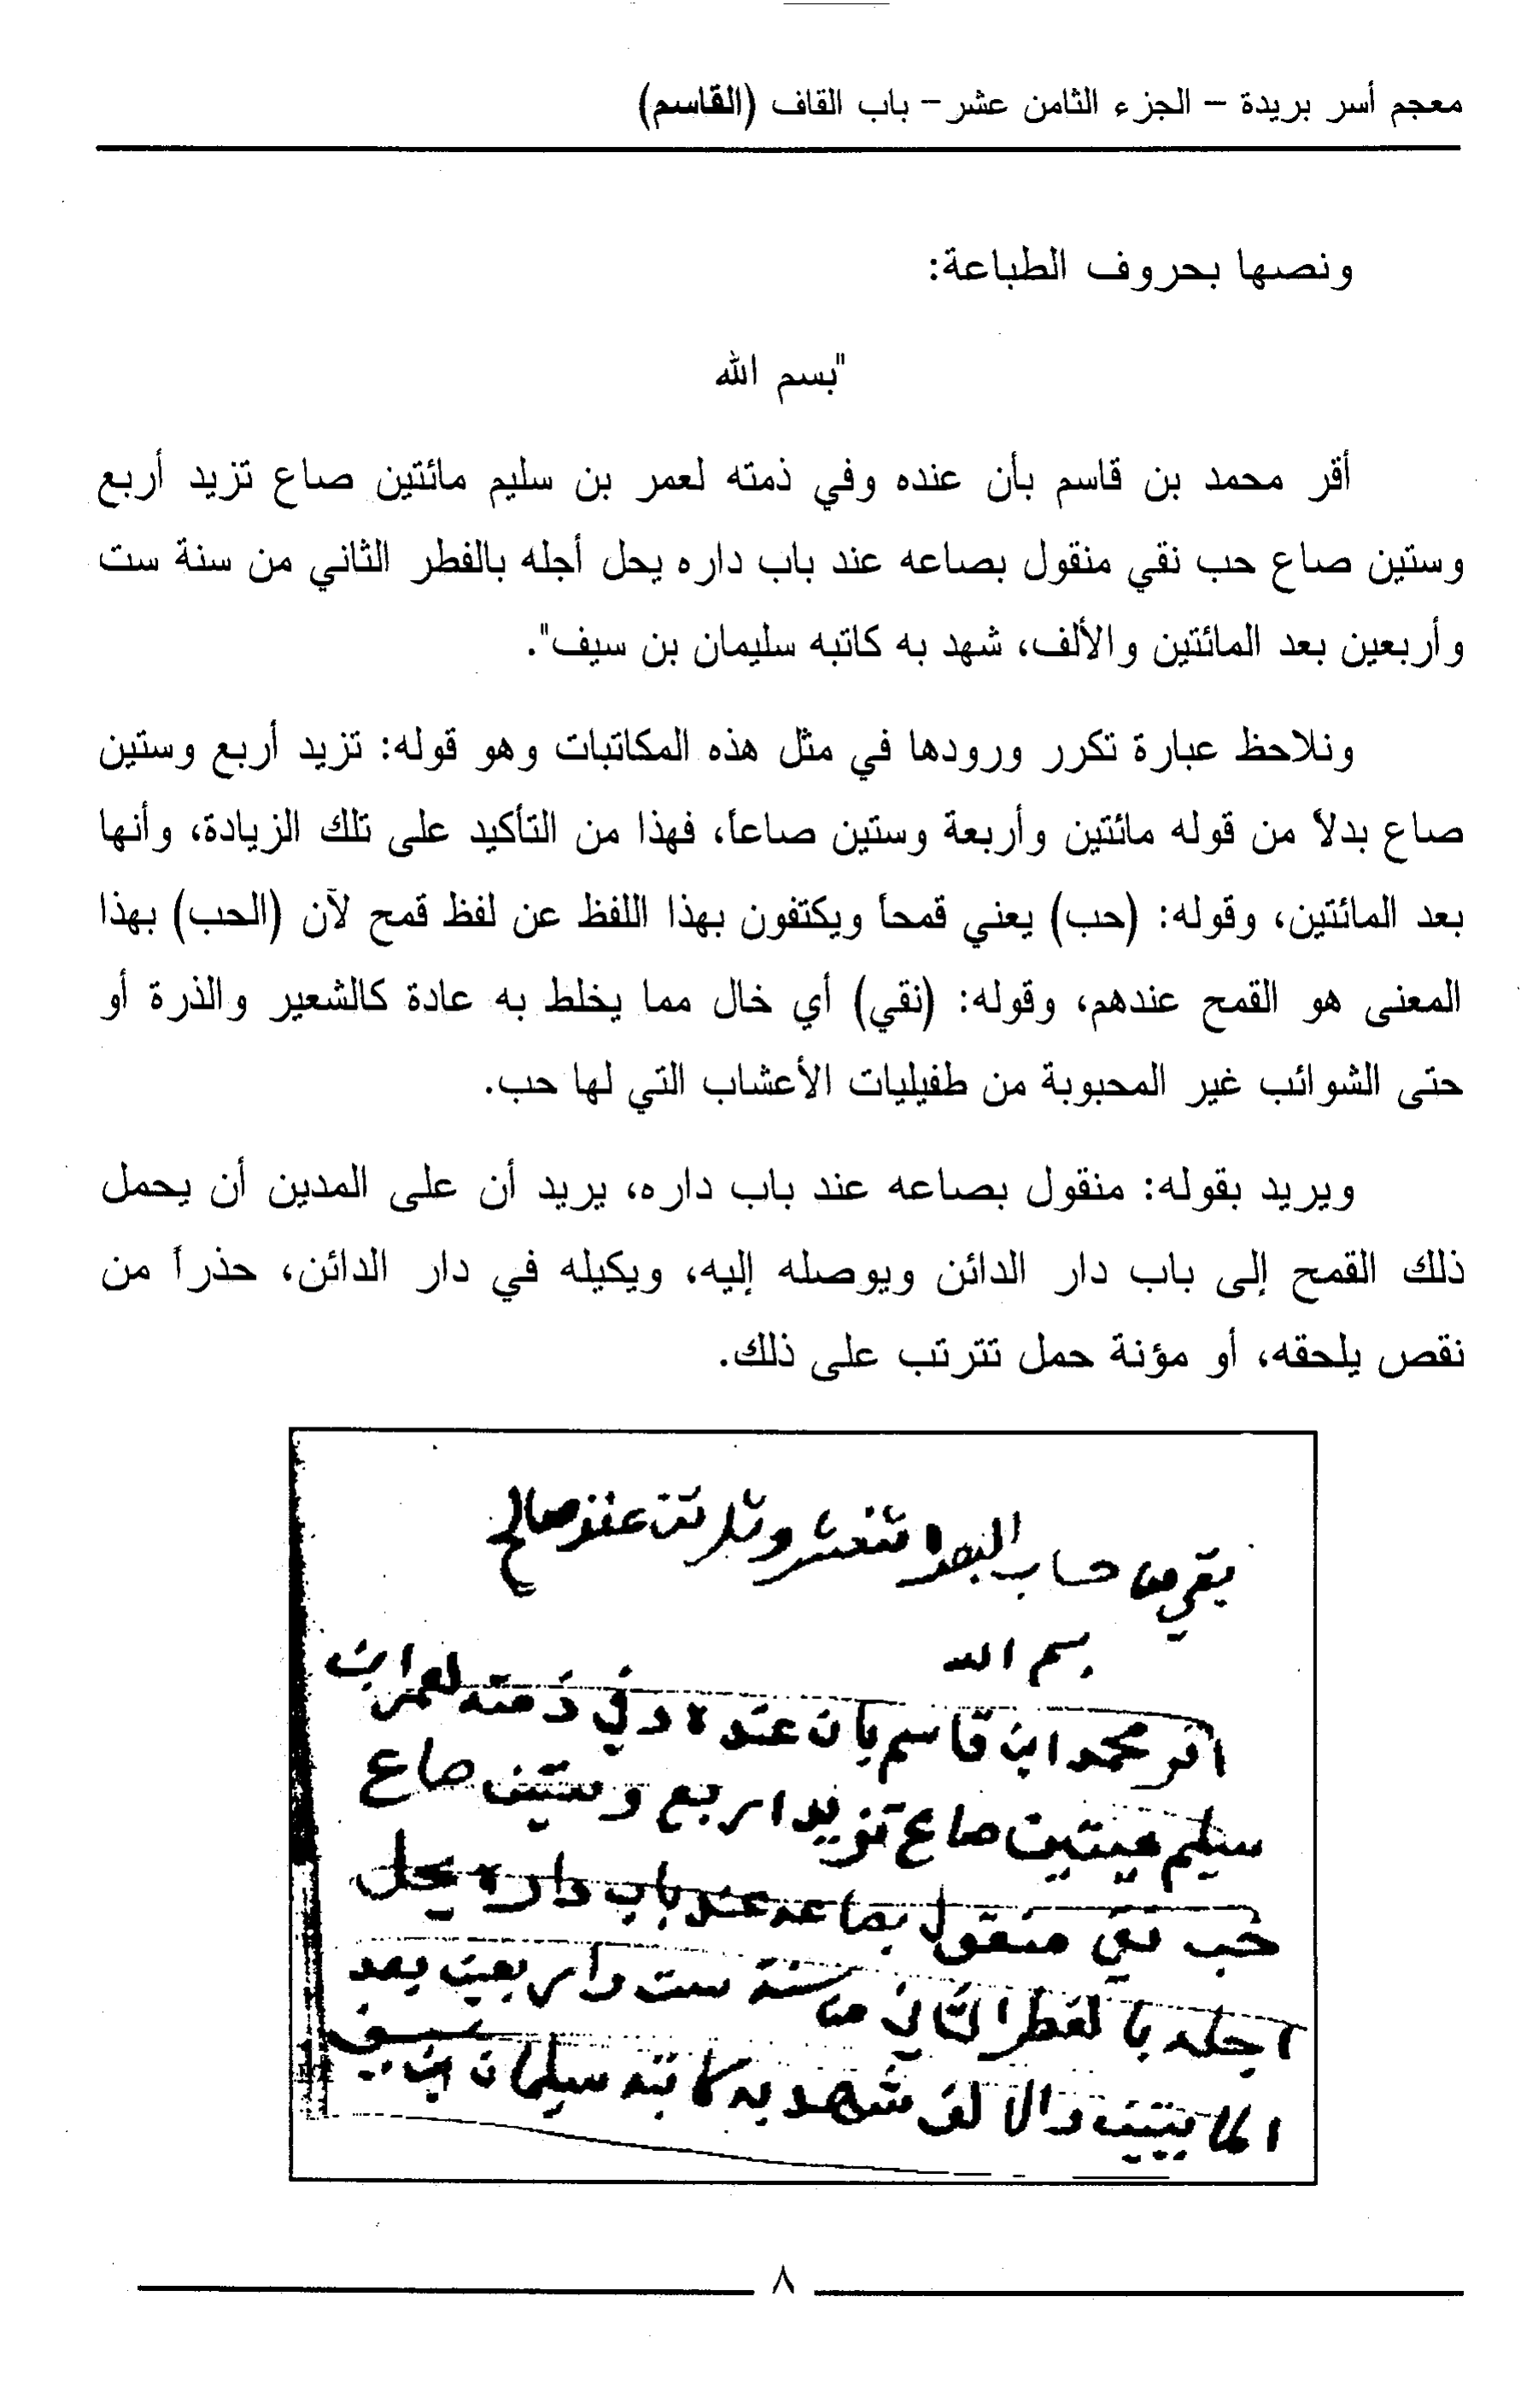 معجم أسر بريدة – الجزء الثامن عشر – باب القاف (القاسم)
ونصها بحروف الطباعة:
"بسم الله
أقر محمد بن قاسم بأن عنده وفي ذمته لعمر بن سليم مائتين صاع تزيد أربع
وستين صاع حب نقي منقول بصاعه عند باب داره يحل أجله بالفطر الثاني من سنة ست
وأربعين بعد المائتين والألف، شهد به كاتبه سليمان بن سيف".
ونلاحظ عبارة تكرر ورودها في مثل هذه المكاتبات وهو قوله: تزيد أربع وستين
صاع بدلاً من قوله مائتين وأربعة وستين صاعاً، فهذا من التأكيد على تلك الزيادة، وأنها
بعد المائتين، وقوله: (حب) يعني قمحاً ويكتفون بهذا اللفظ عن لفظ قمح لأن (الحب) بهذا
المعنى هو القمح عندهم، وقوله: (نقي) أي خال مما يخلط به عادة كالشعير والذرة أو
حتى الشوائب غير المحبوبة من طفيليات الأعشاب التي لها حب.
ويريد بقوله: منقول بصاعه عند باب داره، يريد أن على المدين أن يحمل
ذلك القمح إلى باب دار الدائن ويوصله إليه، ويكيله في دار الدائن، حذراً من
نقص يلحقه، أو مؤنة حمل تترتب على ذلك.
حساب صالح
بسم الله
اقر محمد ابن قاسم بان عنده وفي ذمته لعمر ابن
سليم ميتين صاع تزيد اربع وستين صاع
حب نقي منقول بصاعه عند باب داره يحل
اجله بالفطر الثاني من سنة ست واربعين بعد
المايتين والالف شهد به كاتبه سليمان ابن سيف
٨